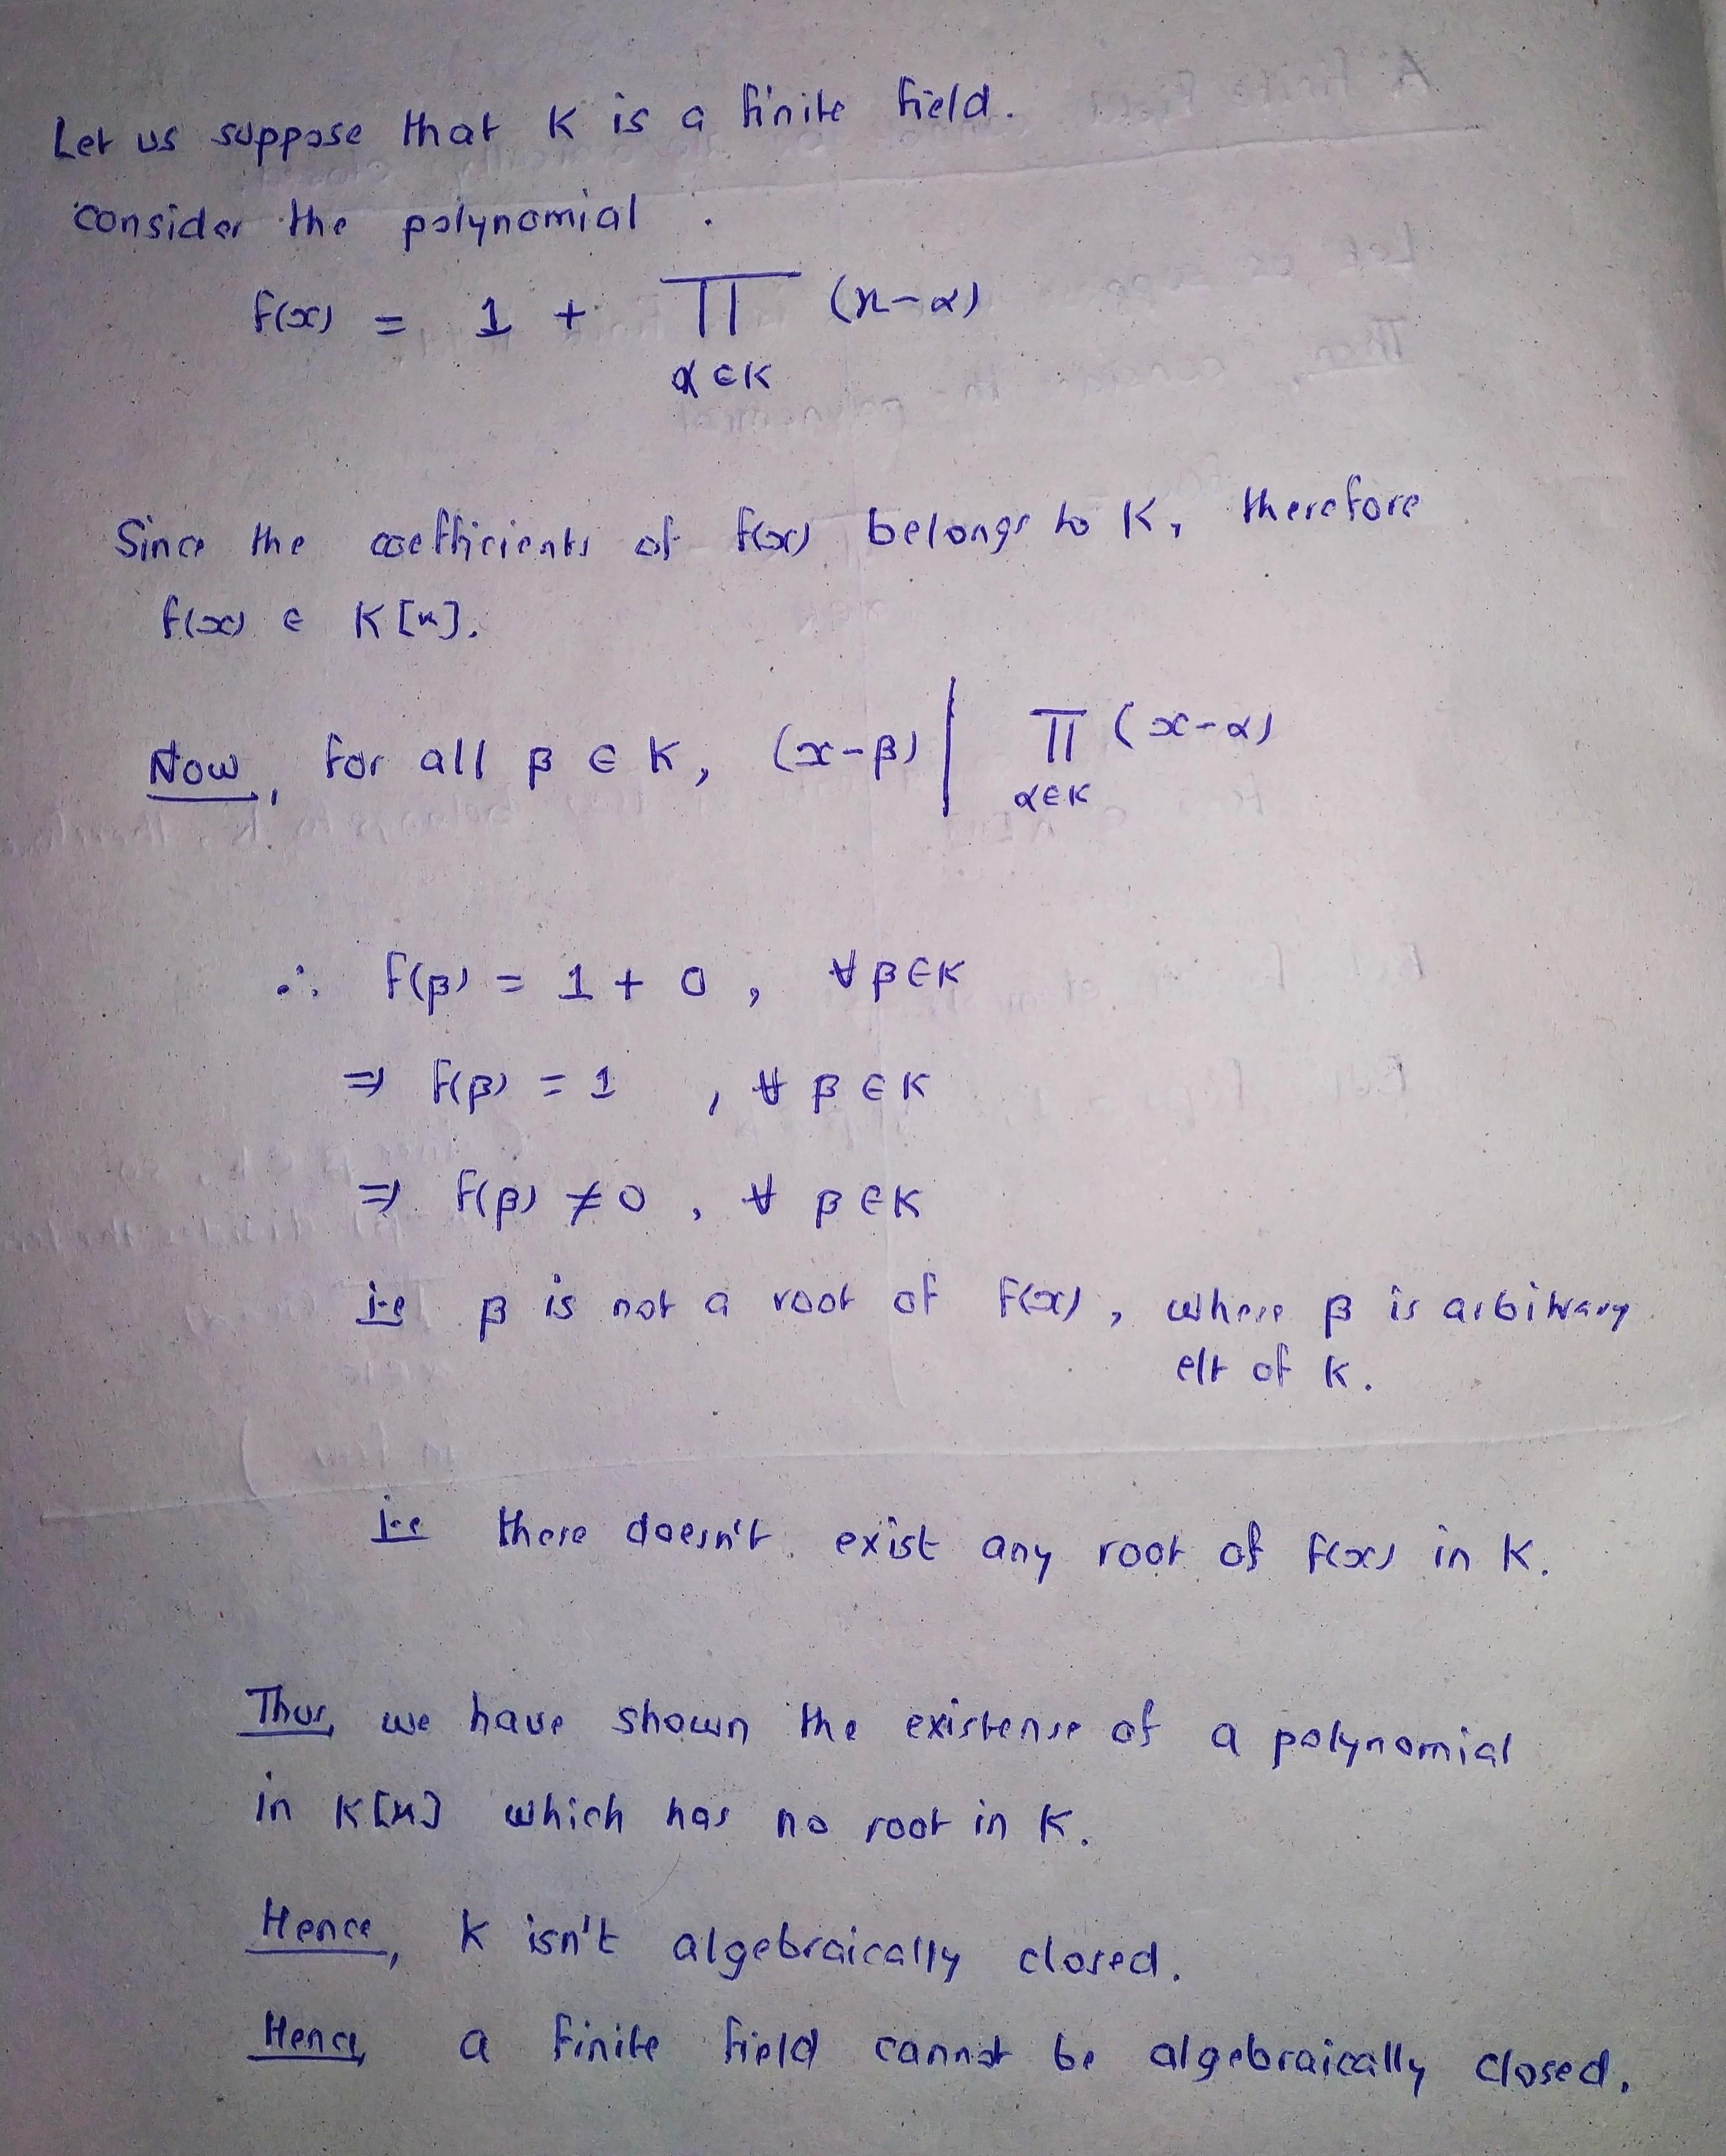 Let us suppose that K is a finite field.
consider the polynomial .
f(x) = 1 + ∏ (x-α)
α∈K
Since the coefficients of f(x) belongs to K, therefore
f(x) ∈ K[x].
Now, for all β ∈ K, (x-β) | ∏ (x-α)
α∈K
∴ f(β) = 1 + 0 , ∀ β∈K
⇒ f(β) = 1 , ∀ β ∈ K
⇒ f(β) ≠ 0 , ∀ β ∈K
i.e β is not a root of f(x), where β is arbitrary
elt of K.
i.e there doesn't exist any root of f(x) in K.
Thus, we have shown the existense of a polynomial
in K[x] which has no root in K.
Hence, K isn't algebraically closed.
Hence, a finite field cannot be algebraically closed.